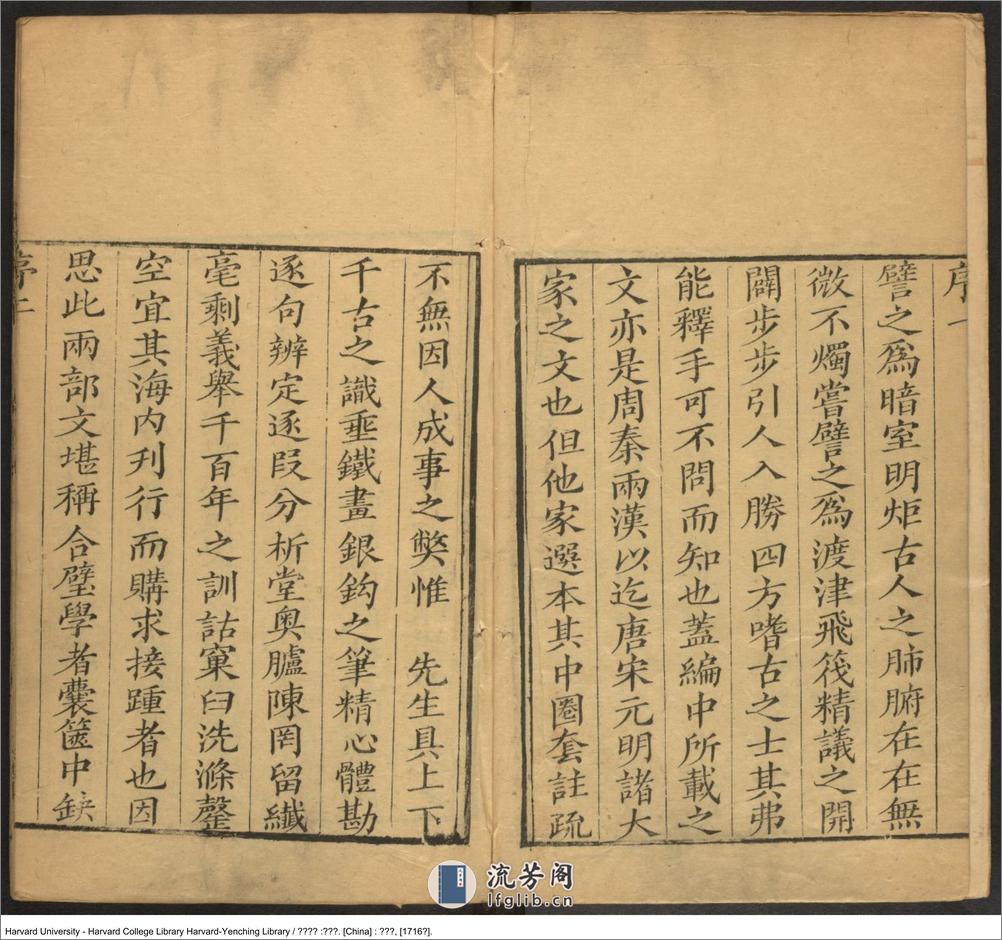 序一
譬之爲暗室明炬古人之肺腑在在無
微不燭嘗譬之爲渡津飛筏精議之開
闢步步引人入勝四方嗜古之士其弗
能釋手可不問而知也蓋編中所載之
文亦是周秦兩漢以迄唐宋元明諸大
家之文也但他家選本其中圈套註疏
不無因人成事之獘惟 先生具上下
千古之識垂鐵畫銀鈎之筆精心體勘
逐句辨定逐段分析堂奥臚陳罔留纖
毫剩義舉千百年之訓詁窠臼洗滌罄
空宜其海内刋行而購求接踵者也因
思此兩部文堪稱合璧學者囊篋中缺
序二
流芳阁
lfglib.cn
Harvard University - Harvard College Library Harvard-Yenching Library / ???? :???. [China] : ???, [1716?].